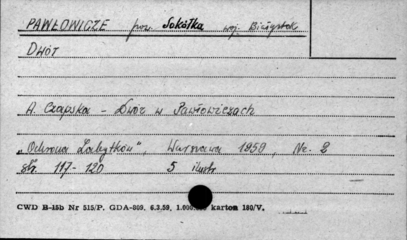 PAWŁOWICZE pow. Sokółka woj. Białystok
Dwór
A. Czapska - Dwór w Pawłowiczach
„Ochrona Zabytków", Warszawa 1959, Nr. 2
str. 117-120 5 ilustr.
CWD B-15b Nr 515/P. GDA-809. 6.3.59. karton 180/V.